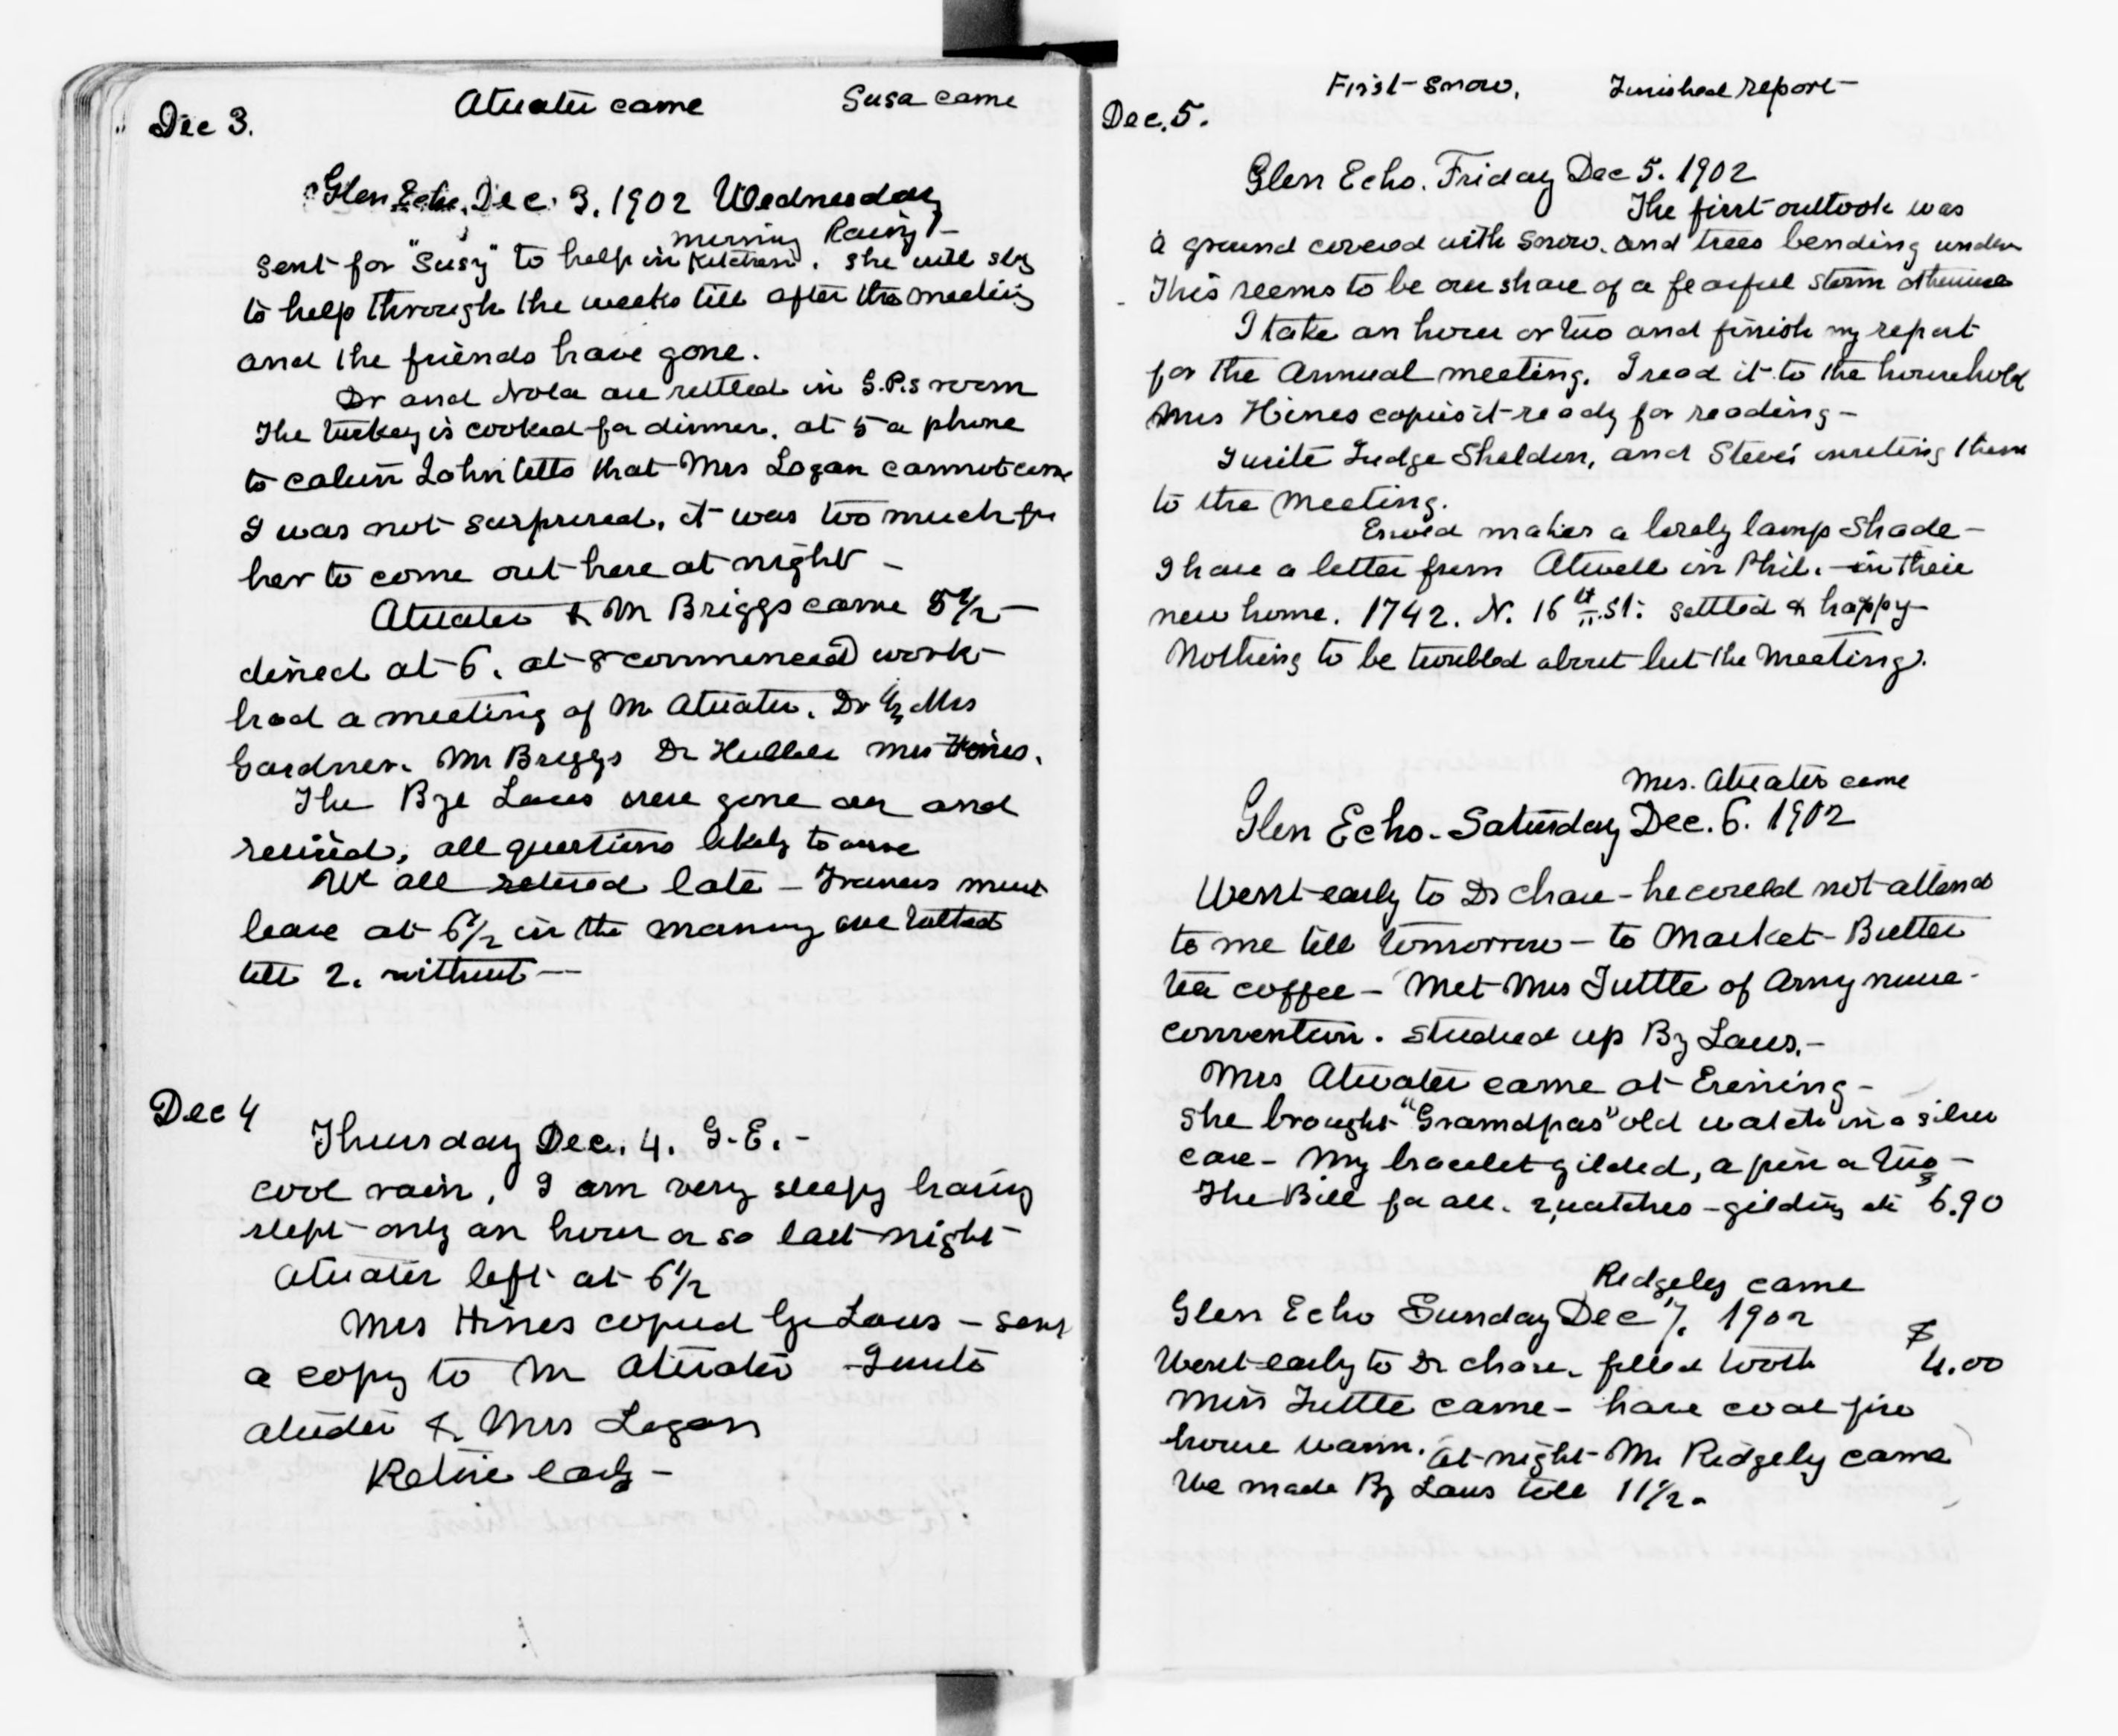 Dec 3.
Atwater came
Susa came
Glen Echo, Dec. 3. 1902 Wednesday
morning Rainy –
sent for "Susy" to help in kitchen. she will stay
to help through the weeks till after the meeting
and the friends have gone.
Dr and Nola are settled in G.P.s room
The turkey is cooked for dinner. at 5 a phone
to John tells that Mrs Logan cannot come
I was not surprised, it was too much for
her to come out here at night –
Atwater & Mr Briggs came 5½ –
dined at 6. at 8 commenced work –
had a meeting of Mr Atwater. Dr & Mrs
Gardner. Mr Briggs Dr Hubbell Mrs Hines.
The Bye Laws were gone over and
revised, all questions likely to arise
We all retired late – Francis must
leave at 6½ in the morning we talked
till 2. without —
Dec 4
Thursday Dec. 4. G. E. –
cool rain, I am very sleepy having
slept only an hour or so last night –
Atwater left at 6½
Mrs Hines copied Bye Laws – sent
a copy to Mr Atwater I write
Atwater & Mrs Logan
Retire early –
First snow. Finished report –
Dec. 5.
Glen Echo. Friday Dec 5. 1902
The first outlook was
a ground covered with snow. and trees bending under
This seems to be our share of a fearful storm otherwise
I take an hour or two and finish my report
for the Annual meeting. I read it to the household
Mrs Hines copies it ready for reading –
I write Judge Sheldon, and Steve's inviting them
to the meeting.
makes a lovely lamp shade –
I have a letter from Atwell in Phil. – in their
new home. 1742. N. 16 th St. settled & happy –
Nothing to be troubled about but the meeting.
Mrs. Atwater came
Glen Echo – Saturday Dec. 6. 1902
Went early to Dr Chase – he could not attend
to me till tomorrow – to Market – Butter
tea coffee – Met Mrs Tuttle of Army nurse
convention. studied up By Laws. –
Mrs Atwater came at Evening –
she brought "Grandpas" old watch in a silver
case – My bracelet gilded, a pin or two –
The Bill for all. 2 watches – gilding etc 6.90
Ridgely came
Glen Echo Sunday Dec 7. 1902
$
Went early to Dr Chase. filled tooth 4.00
Miss Tuttle came – have coal fire
house warm. At night Mr Ridgely came
We made By Laws till 11½.